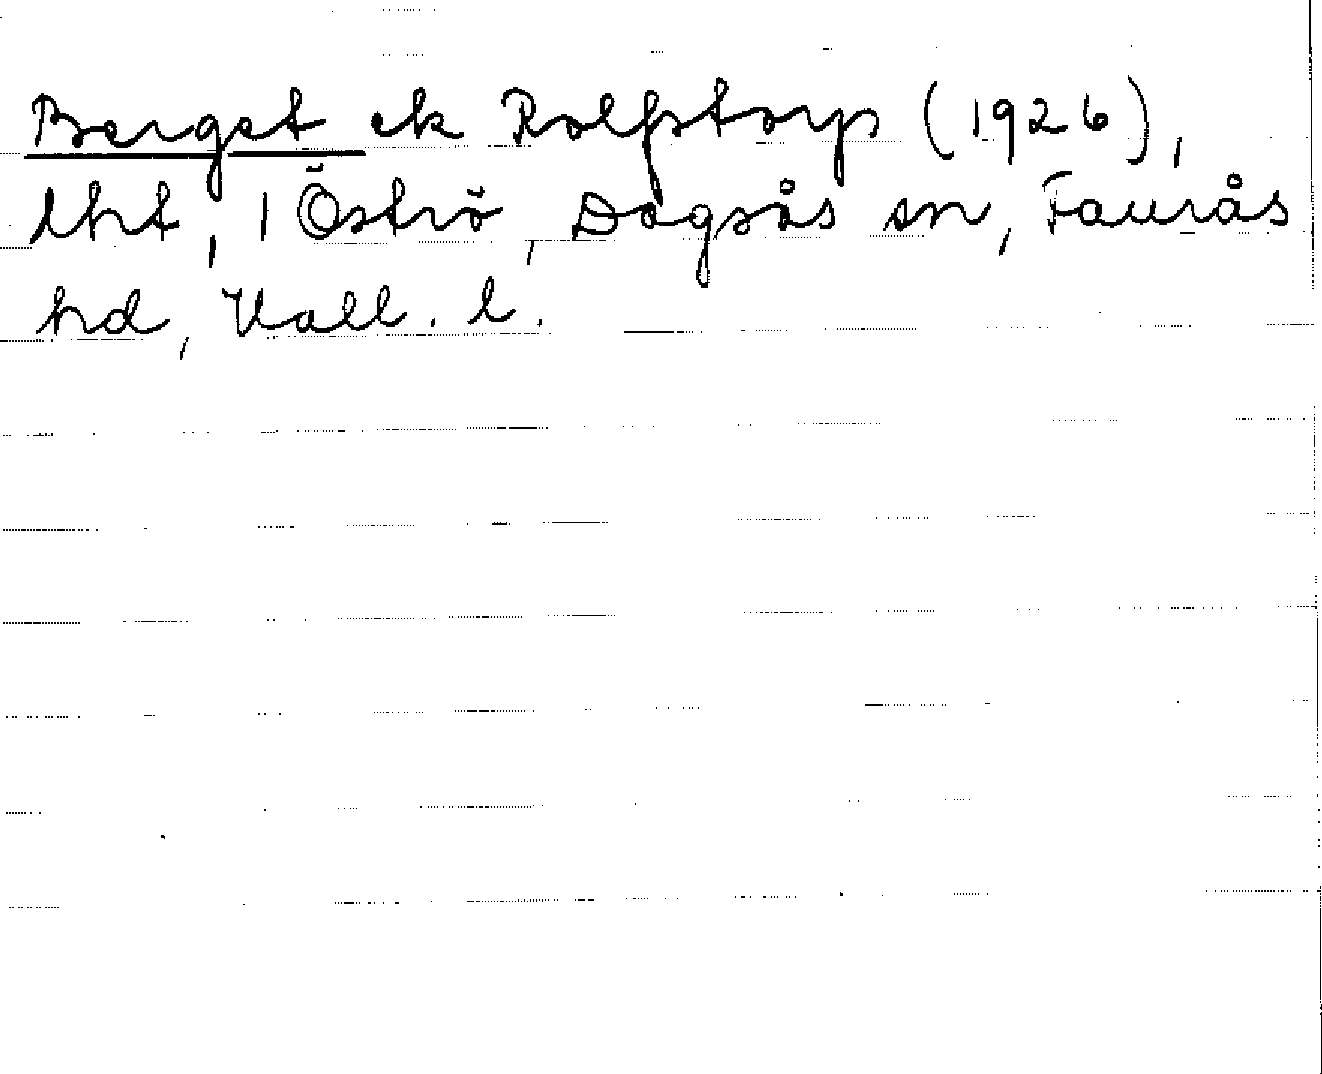 Berget ek Rolfstorp (1926),
lht, 1 Öströ, Dagsås sn, Faurås
hd, Hall. l.